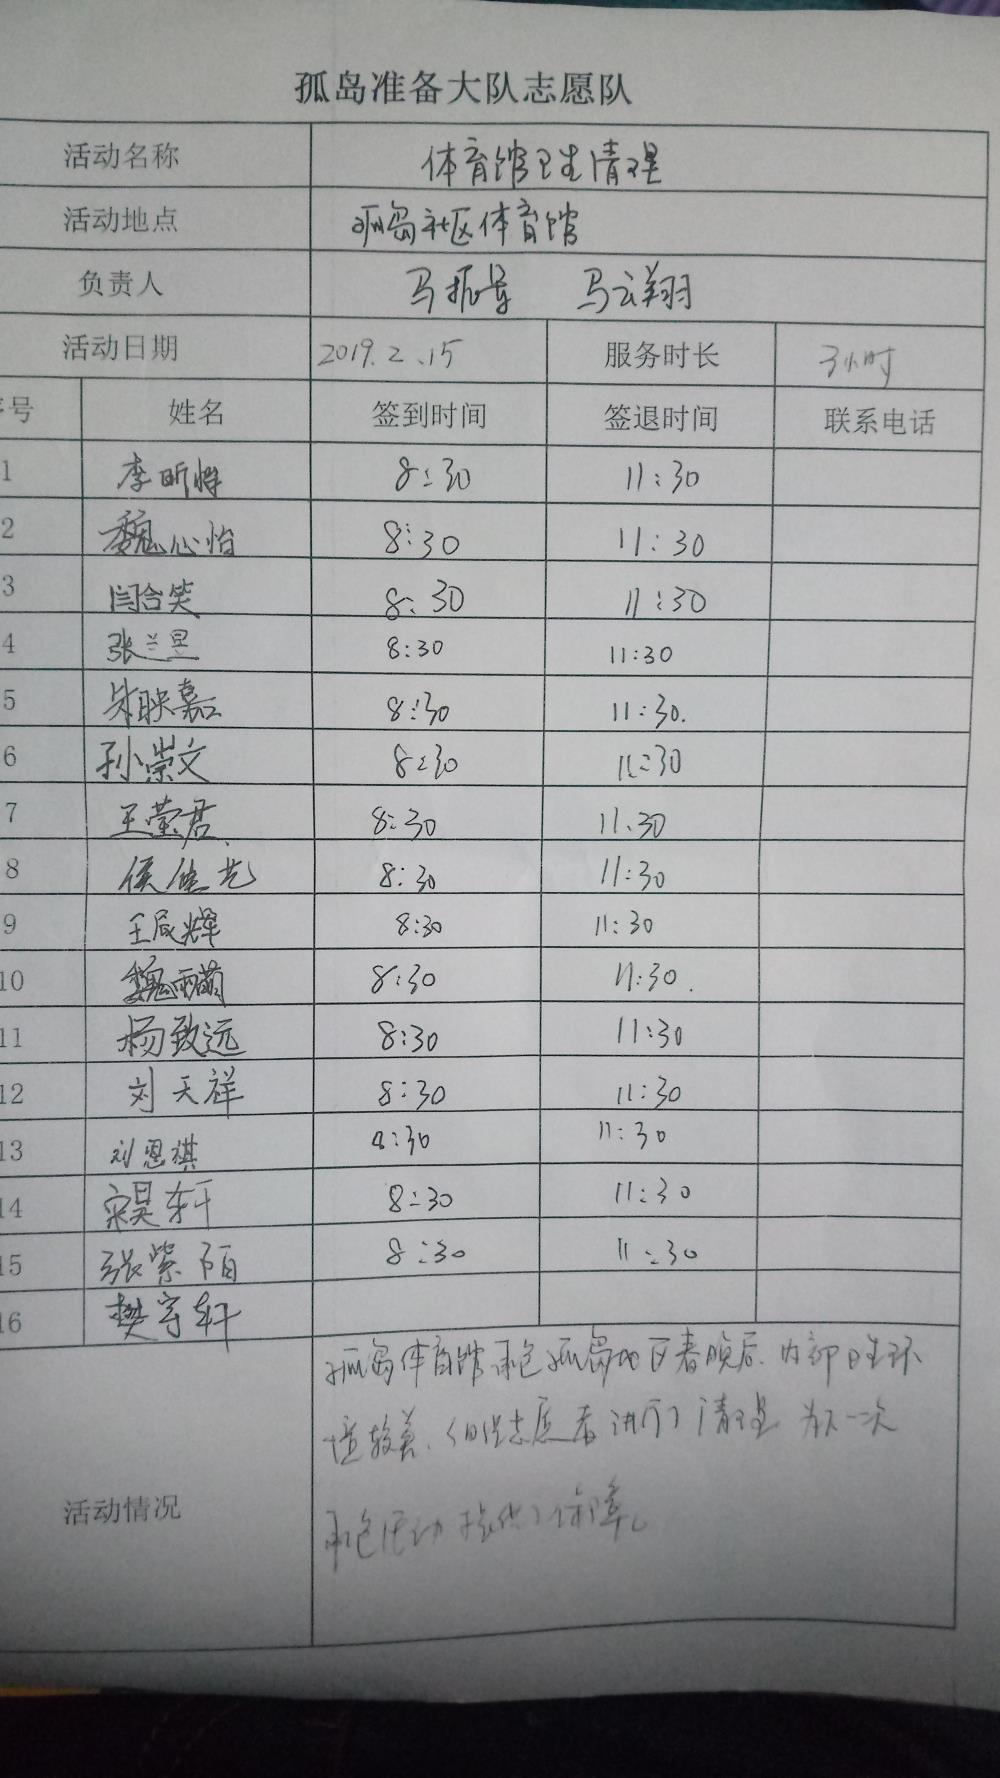 孤岛准备大队志愿队
活动名称 体育馆卫生清理
活动地点 孤岛社区体育馆
负责人 马振 马云翔
活动日期 2019.2.15 服务时长 3小时
号 姓名 签到时间 签退时间 联系电话
1 李昕 8:30 11:30
2 魏心怡 8:30 11:30
3 闫合笑 8:30 11:30
4 张兰昱 8:30 11:30
5 朱映嘉 8:30 11:30.
6 孙崇文 8:30 11:30
7 王莹君 8:30 11.30
8 侯佳艺 8:30 11:30
9 王辰辉 8:30 11:30
10 魏雨萌 8:30 11:30.
11 杨致远 8:30 11:30
12 刘天祥 8:30 11:30
13 刘恩祺 8:30 11:30
14 宋昊轩 8:30 11:30
15 张紫陌 8:30 11:30
16 樊宇轩
孤岛体育馆承包孤岛地区春晚后、内部卫生环
境较差、志愿者进行了清理 为下一次
承包活动提供了保障。
活动情况